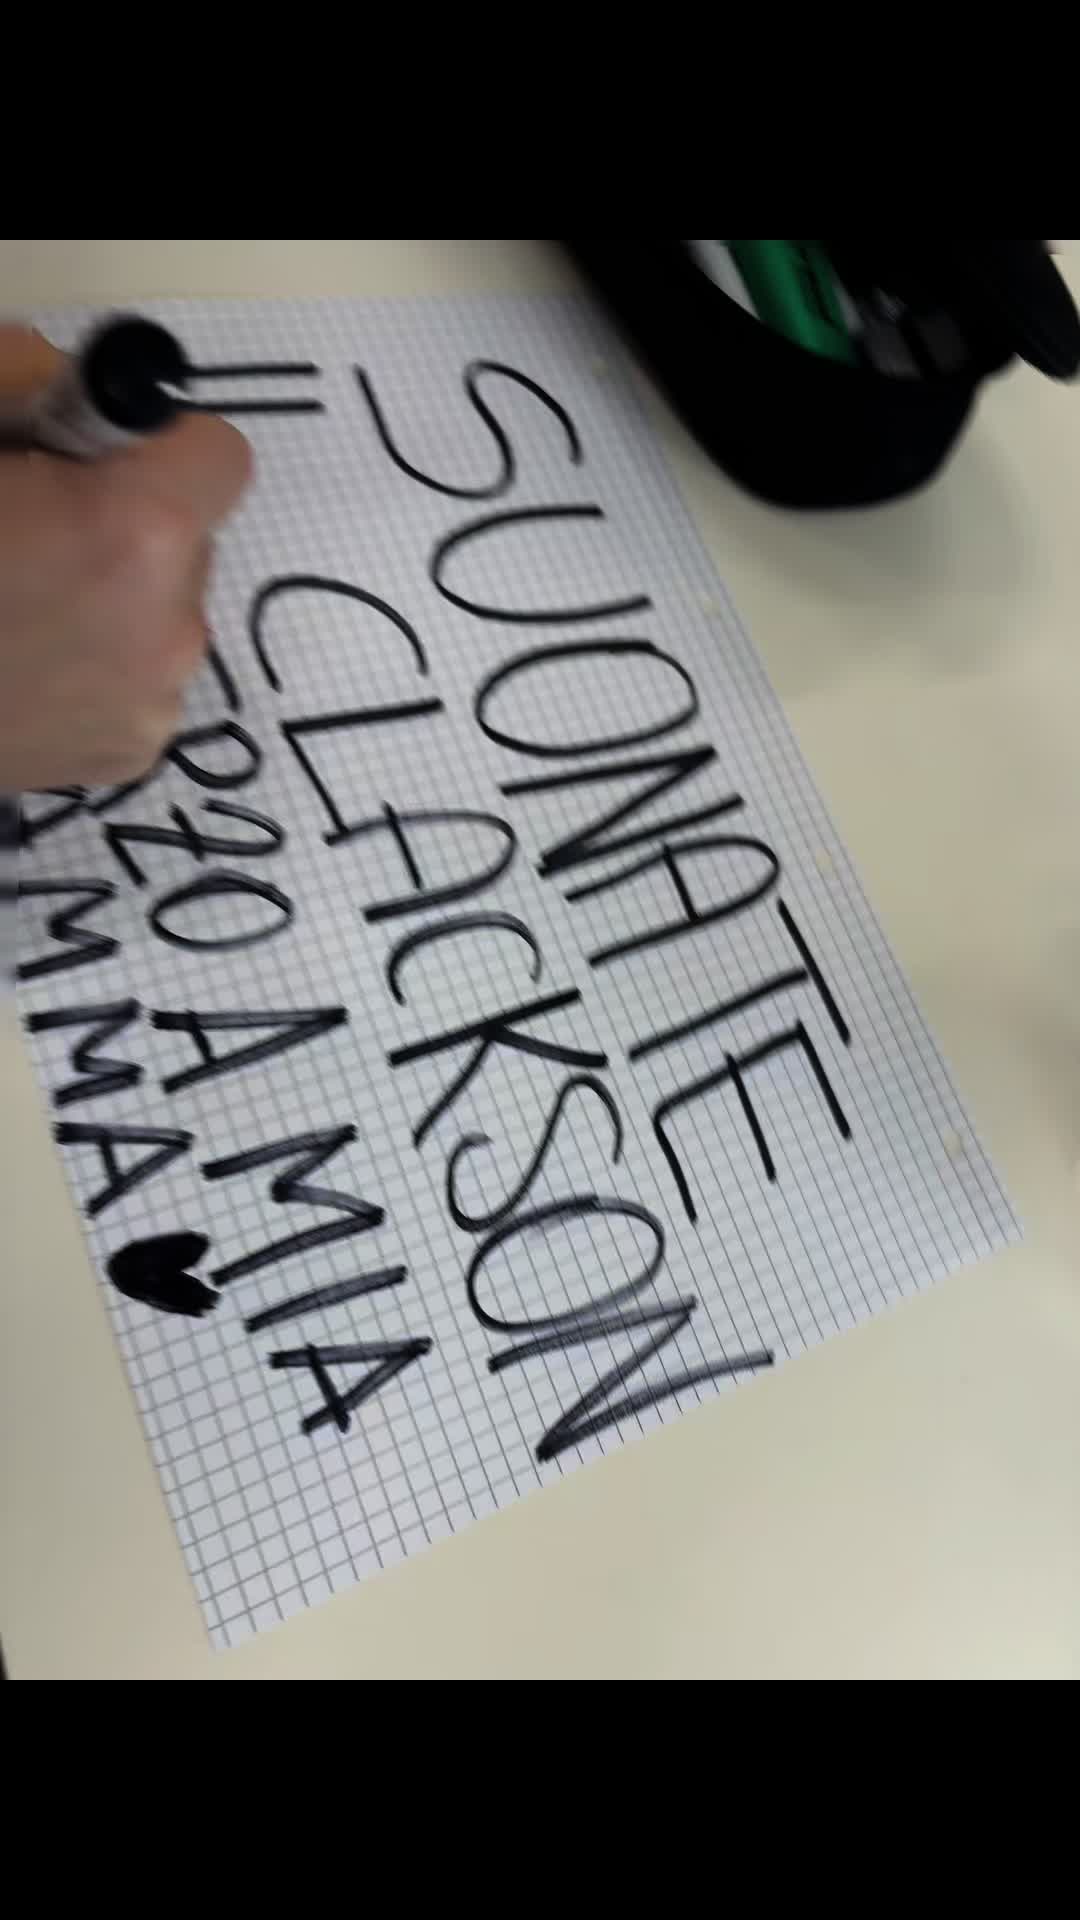 SUONATE
IL CLACKSON
A MIA
MAMMA